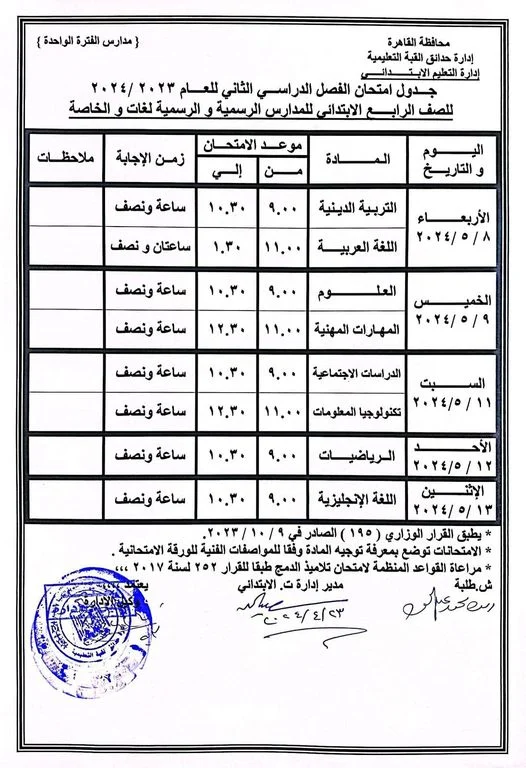 محافظة القاهرة
إدارة حدائق القبة التعليمية
إدارة التعليم الابتدائي
{ مدارس الفترة الواحدة }
جدول امتحان الفصل الدراسي الثاني للعام ٢٠٢٣ /٢٠٢٤
للصف الرابع الابتدائي للمدارس الرسمية و الرسمية لغات و الخاصة
اليوم و التاريخ | المادة | موعد الامتحان من | إلي | زمن الإجابة | ملاحظات
الأربعاء ٢٠٢٤/٥/٨ | التربية الدينية | ٩.٠٠ | ١٠.٣٠ | ساعة ونصف
اللغة العربية | ١١.٠٠ | ١.٣٠ | ساعتان و نصف
الخميس ٢٠٢٤/٥/٩ | العلوم | ٩.٠٠ | ١٠.٣٠ | ساعة ونصف
المهارات المهنية | ١١.٠٠ | ١٢.٣٠ | ساعة ونصف
السبت ٢٠٢٤/٥/١١ | الدراسات الاجتماعية | ٩.٠٠ | ١٠.٣٠ | ساعة ونصف
تكنولوجيا المعلومات | ١١.٠٠ | ١٢.٣٠ | ساعة ونصف
الأحد ٢٠٢٤/٥/١٢ | الرياضيات | ٩.٠٠ | ١٠.٣٠ | ساعة ونصف
الإثنين ٢٠٢٤/٥/١٣ | اللغة الإنجليزية | ٩.٠٠ | ١٠.٣٠ | ساعة ونصف
* يطبق القرار الوزاري ( ١٩٥ ) الصادر في ٩ / ١٠ / ٢٠٢٣.
* الامتحانات توضع بمعرفة توجيه المادة وفقا للمواصفات الفنية للورقة الامتحانية .
* مراعاة القواعد المنظمة لامتحان تلاميذ الدمج طبقا للقرار ٢٥٢ لسنة ٢٠١٧ ،،،،
ش.طلبة
مدير إدارة ت. الابتدائي
يعتمد ،،،،
وكيل الإدارة
٢٠٢٤/٤/٢٣